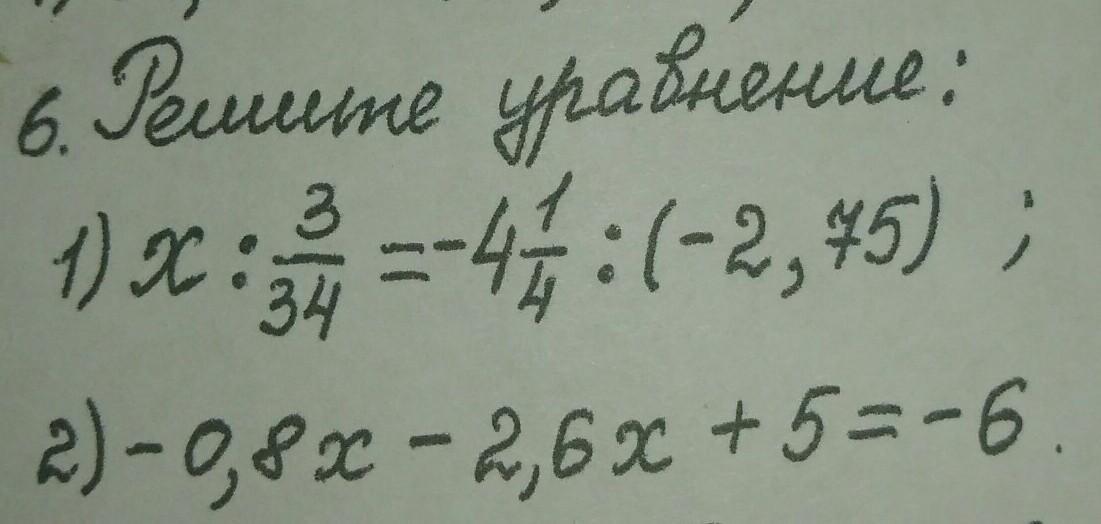 6. Решите уравнение:
1) x : 3/34 = -4 1/4 : (-2,75) ;
2) -0,8x - 2,6x + 5 = -6.